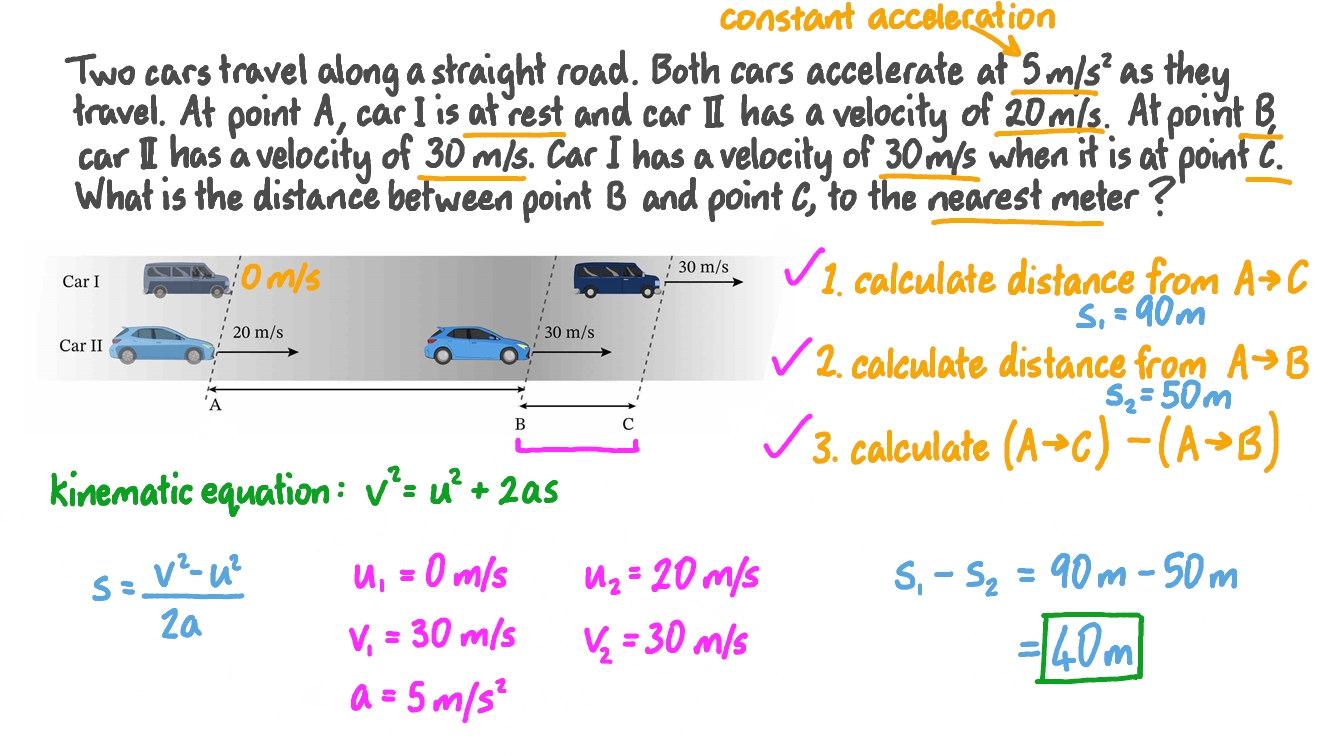 constant acceleration
Two cars travel along a straight road. Both cars accelerate at 5 m/s² as they
travel. At point A, car I is at rest and car II has a velocity of 20 m/s. At point B,
car II has a velocity of 30 m/s. Car I has a velocity of 30 m/s when it is at point C.
What is the distance between point B and point C, to the nearest meter?
Car I
0 m/s
30 m/s
Car II
20 m/s
30 m/s
A
B
C
✓ 1. calculate distance from A→C
s₁ = 90 m
✓ 2. calculate distance from A→B
s₂ = 50 m
✓ 3. calculate (A→C) − (A→B)
kinematic equation: v² = u² + 2as
s = v² − u² / 2a
u₁ = 0 m/s
v₁ = 30 m/s
a = 5 m/s²
u₂ = 20 m/s
v₂ = 30 m/s
s₁ − s₂ = 90 m − 50 m
= 40 m